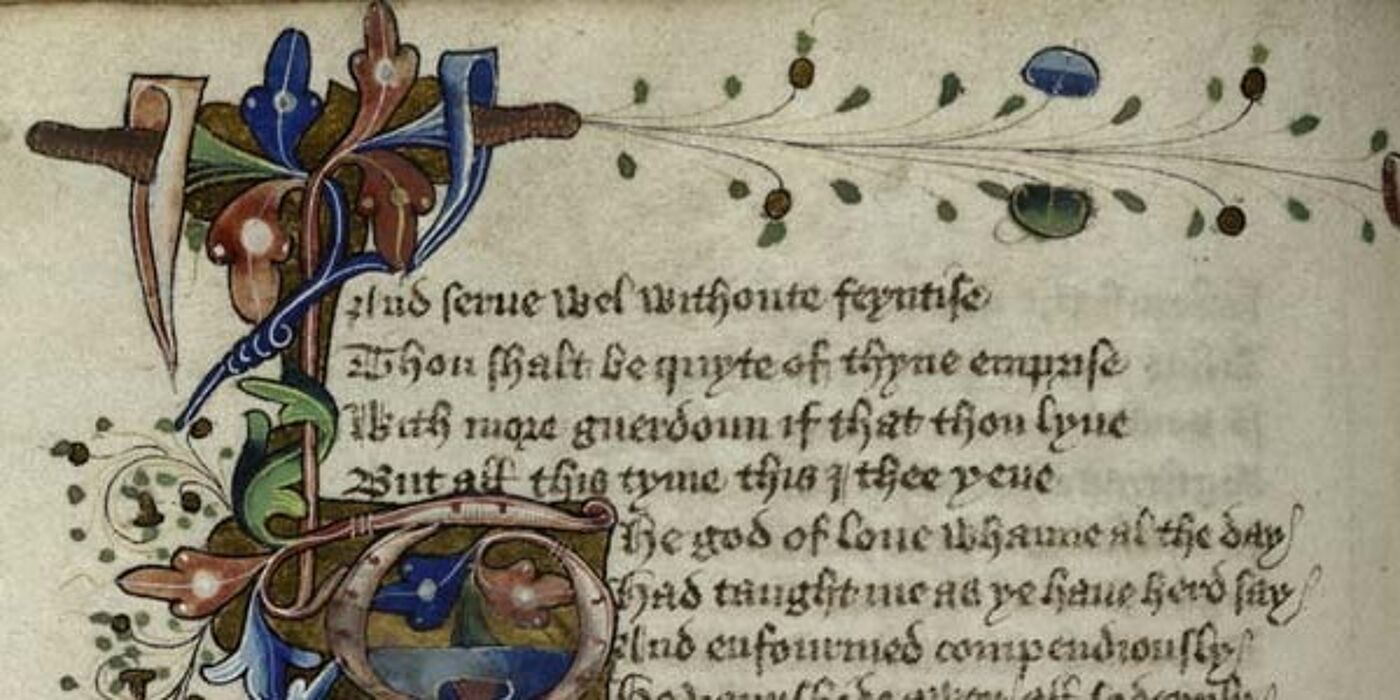 And serue wel withoute feyntise
Thou shalt be quyte of thyne emprise
With more guerdoun if that thou lyue
But all this tyme this I thee yeue
The god of loue whanne al the day
Had taught me as ye haue herd say
And enfourmed compendiously